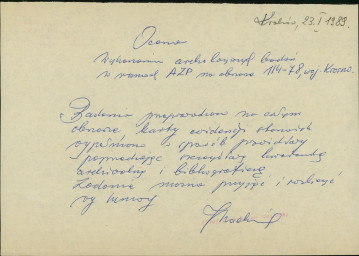 Kraków, 23.I 1989.
Ocena
wykonania archeologicznych badań
w ramach AZP na obszarze 114-78, woj. Krosno.
Badania przeprowadzono na całym
obszarze, karty ewidencji stanowisk
wypełniono w sposób prawidłowy
poprzedzając szczegółową kwerendą
archiwalną i bibliograficzną
Zadanie można przyjąć i rozliczyć
wg umowy